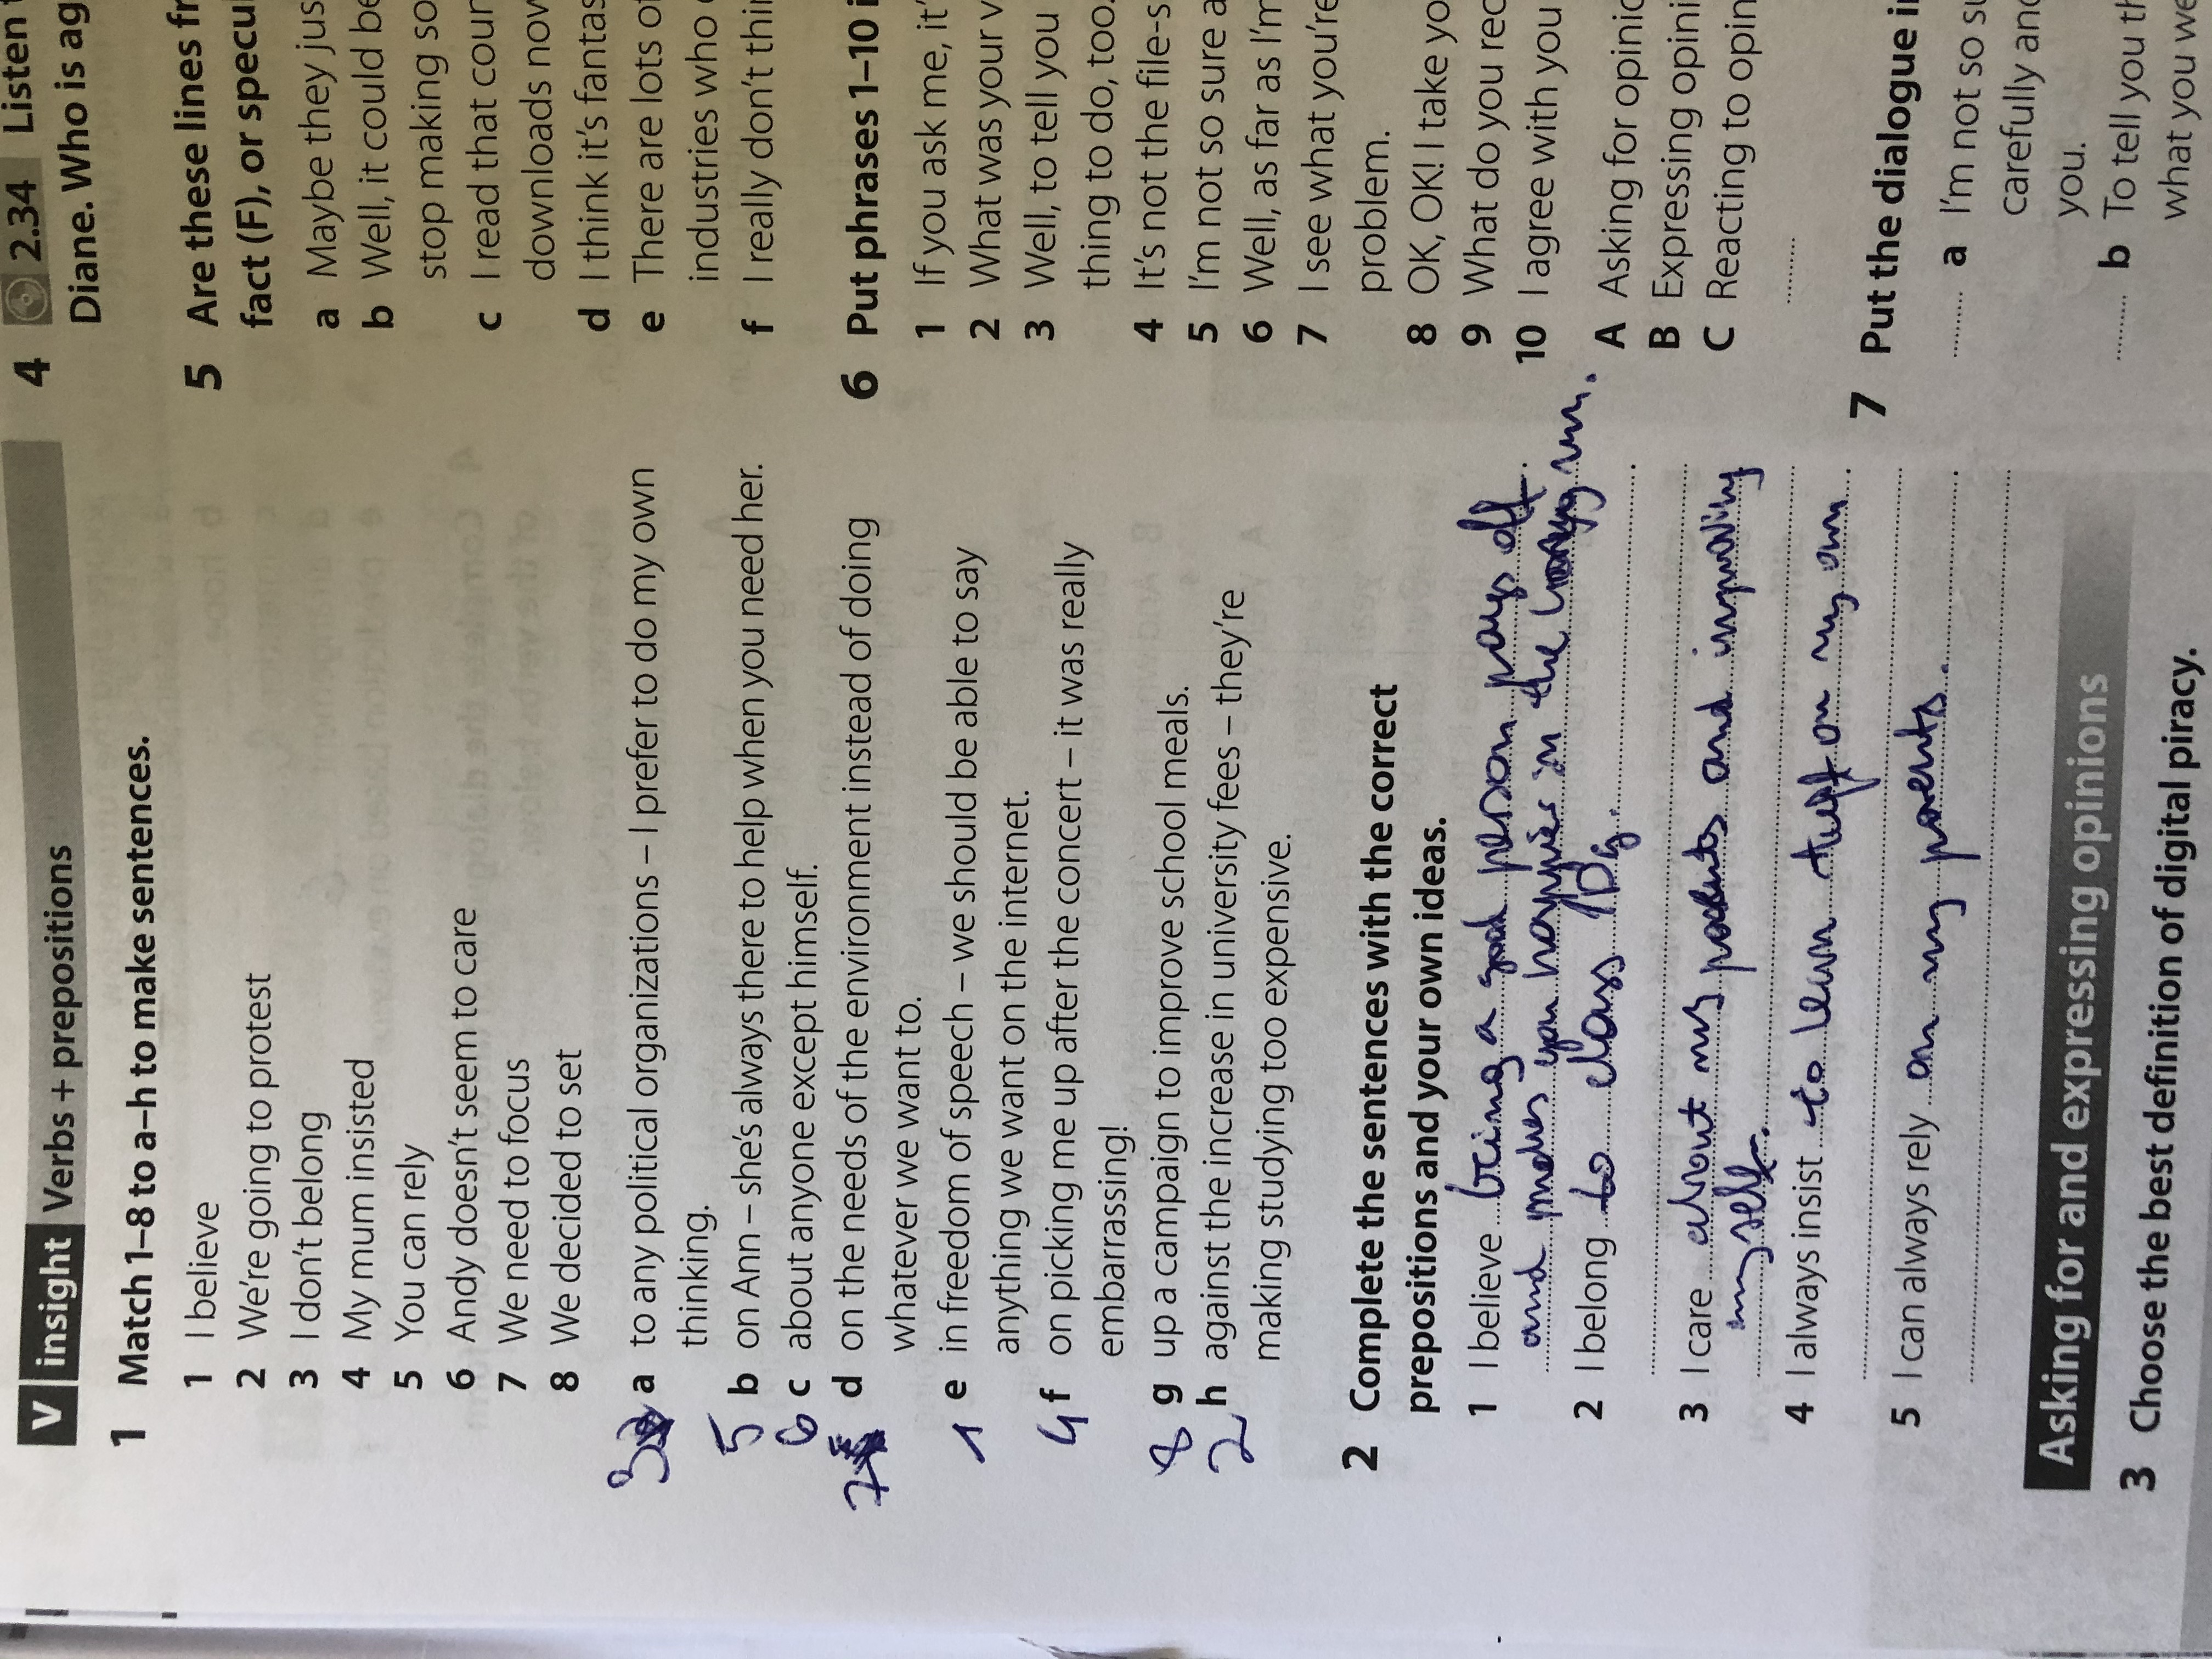 V insight Verbs + prepositions
1 Match 1–8 to a–h to make sentences.
1 I believe
2 We're going to protest
3 I don't belong
4 My mum insisted
5 You can rely
6 Andy doesn't seem to care
7 We need to focus
8 We decided to set
3 a to any political organizations – I prefer to do my own
thinking.
5 b on Ann – she's always there to help when you need her.
6 c about anyone except himself.
7 d on the needs of the environment instead of doing
whatever we want to.
1 e in freedom of speech – we should be able to say
anything we want on the internet.
4 f on picking me up after the concert – it was really
embarrassing!
8 g up a campaign to improve school meals.
2 h against the increase in university fees – they're
making studying too expensive.
2 Complete the sentences with the correct
prepositions and your own ideas.
1 I believe being a good person pays off
and makes you happier in the long run.
2 I belong to class 1Dg.
3 I care about my parents and improving
myself.
4 I always insist to learn stuff on my own.
5 I can always rely on my parents.
Asking for and expressing opinions
3 Choose the best definition of digital piracy.
4 2.34 Listen
Diane. Who is ag
5 Are these lines fr
fact (F), or specu
a Maybe they jus
b Well, it could be
stop making so
c I read that cour
downloads now
d I think it's fantas
e There are lots of
industries who
f I really don't thin
6 Put phrases 1–10 i
1 If you ask me, it'
2 What was your v
3 Well, to tell you
thing to do, too.
4 It's not the file-s
5 I'm not so sure a
6 Well, as far as I'm
7 I see what you're
problem.
8 OK, OK! I take yo
9 What do you rec
10 I agree with you
A Asking for opinio
B Expressing opini
C Reacting to opin
7 Put the dialogue i
a I'm not so su
carefully and
you.
b To tell you th
what you we